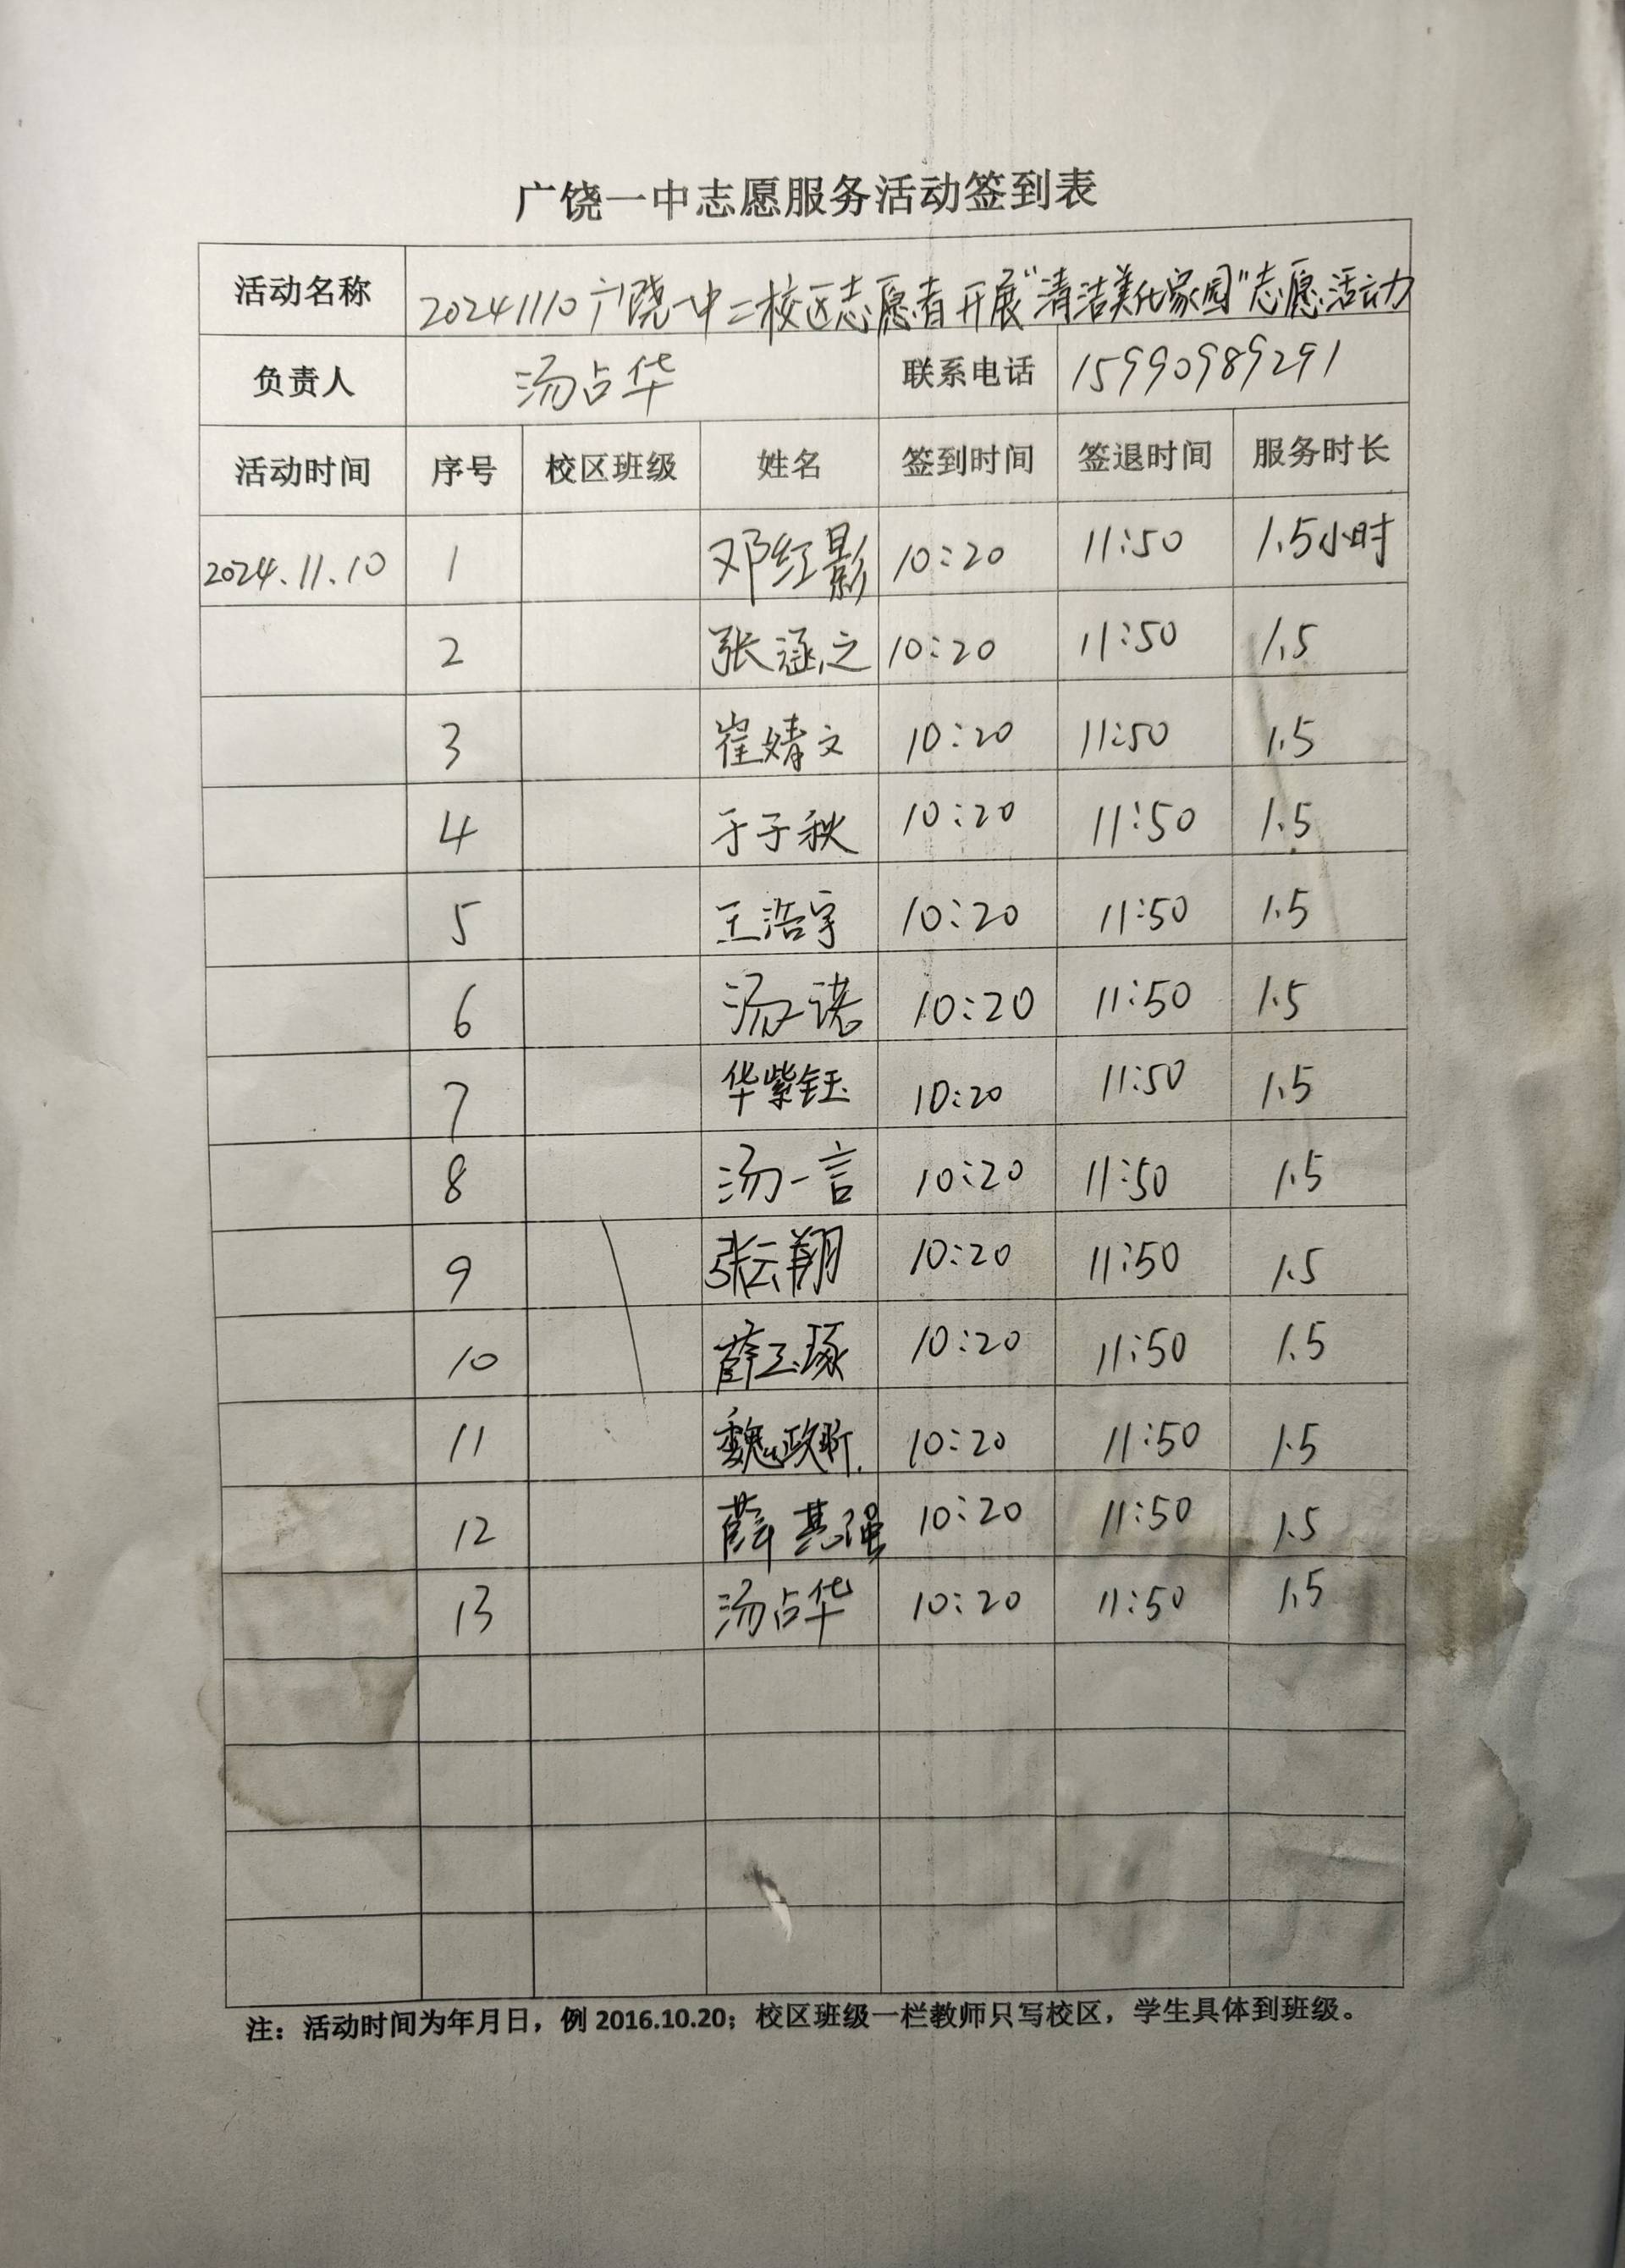 广饶一中志愿服务活动签到表
活动名称 20241110广饶一中二校区志愿者开展“清洁美化家园”志愿活动
负责人 汤占华 联系电话 15990989291
活动时间 序号 校区班级 姓名 签到时间 签退时间 服务时长
2024.11.10 1 邓红影 10:20 11:50 1.5小时
2 张涵之 10:20 11:50 1.5
3 崔婧文 10:20 11:50 1.5
4 于子秋 10:20 11:50 1.5
5 王浩宇 10:20 11:50 1.5
6 汤诺 10:20 11:50 1.5
7 华紫钰 10:20 11:50 1.5
8 汤一言 10:20 11:50 1.5
9 张云翔 10:20 11:50 1.5
10 薛玉琢 10:20 11:50 1.5
11 魏政昕 10:20 11:50 1.5
12 薛基强 10:20 11:50 1.5
13 汤占华 10:20 11:50 1.5
注：活动时间为年月日，例 2016.10.20；校区班级一栏教师只写校区，学生具体到班级。